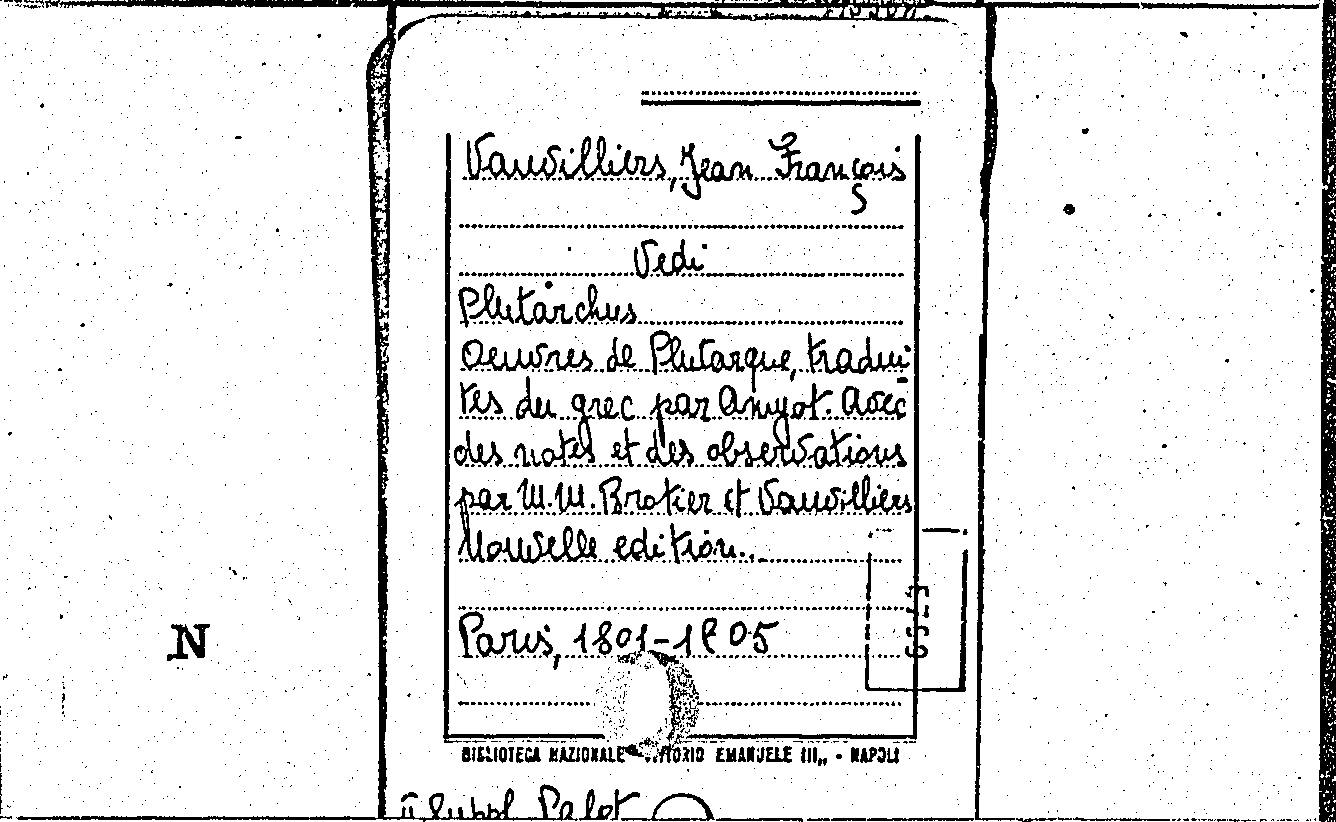 Vauvilliers, Jean François
Vedi
Plutarchus
Oeuvres de Plutarque, tradui
tes du grec par Amyot. Avec
des notes et des observations
par M.M. Brotier et Vauvilliers
Nouvelle edition...
Paris, 1801-1805
N
BIBLIOTECA NAZIONALE VITTORIO EMANUELE III,, - NAPOLI